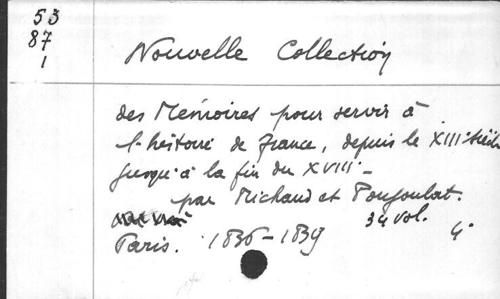 53
87
1
Nouvelle Collection
des Mémoires pour servir à
l'histoire de France, depuis le XIII siècle
jusqu'à la fin du XVIII -
par Michaud et Poujoulat.
34 vol.
Paris. 1836-1839 4°